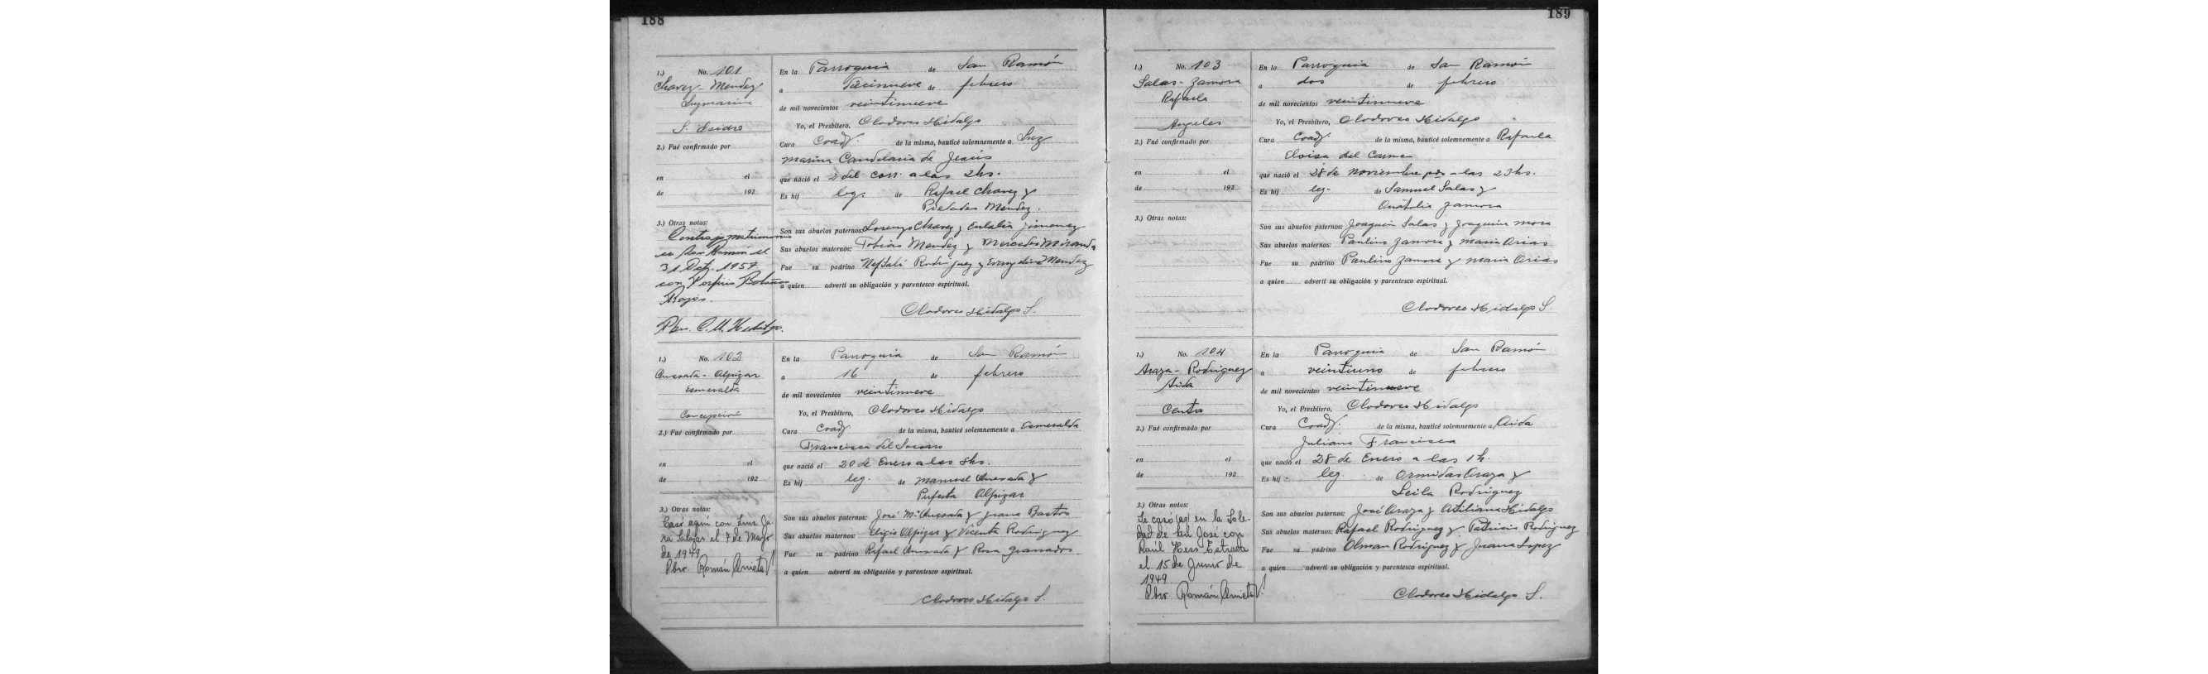 188
1.) No. 101
Chavez - Mendez
Luzmarina
S. Isidro
2.) Fué confirmado por
en el
de 192
3.) Otras notas:
Contrajo matrimonio
en San Ramón el
31 1957
con Porfirio Bolaños
Rojas.
Pbro. C. M. Hidalgo.
En la Parroquia de San Ramón
a de febrero
de mil novecientos veintinueve
Yo, el Presbítero, Clodoveo Hidalgo
Cura Coadj. de la misma, bauticé solemnemente a Luz
marina Candelaria de Jesús
que nació el 2 del corr. a las 2hs.
Es hij leg. de Rafael Chavez y
Mendez.
Son sus abuelos paternos: Lorenzo Chavez y Eulalia Jimenez
Sus abuelos maternos: Tobias Mendez y Mercedes Miranda
Fue su padrino Neftalí Rodriguez y Mendez
a quien advertí su obligación y parentesco espiritual.
Clodoveo Hidalgo S.
1.) No. 102
Quesada - Alpizar
Esmeralda
Concepción
2.) Fué confirmado por
en el
de 192
3.) Otras notas:
Casó aquí con Luis Ja-
ra el 7 de Mayo
de 1949
Pbro. Román Arrieta V.
En la Parroquia de San Ramón
a 16 de febrero
de mil novecientos veintinueve
Yo, el Presbítero, Clodoveo Hidalgo
Cura Coadj de la misma, bauticé solemnemente a Esmeralda
Francisca del Socorro
que nació el 20 de Enero a las 8hs.
Es hij leg. de Manuel Quesada y
Perfecta Alpizar
Son sus abuelos paternos: José Mª Quesada y Juana Bastos
Sus abuelos maternos: Eligio Alpizar y Vicenta Rodriguez
Fue su padrino Rafael Quesada y Rosa Granados.
a quien advertí su obligación y parentesco espiritual.
Clodoveo Hidalgo S.
189
1.) No. 103
Salas - Zamora
Rafaela
Angeles
2.) Fué confirmado por
en el
de 192
3.) Otras notas:
En la Parroquia de San Ramón
a dos de febrero
de mil novecientos veintinueve
Yo, el Presbítero, Clodoveo Hidalgo
Cura Coadj. de la misma, bauticé solemnemente a Rafaela
Eloisa del Carmen
que nació el 28 de Noviembre pdo a las 23hs.
Es hij leg. de Samuel Salas y
Anatolia Zamora
Son sus abuelos paternos: Joaquín Salas y Joaquina Mora
Sus abuelos maternos: Paulino Zamora y Maria Arias
Fue su padrino Paulino Zamora y Maria Arias
a quien advertí su obligación y parentesco espiritual.
Clodoveo Hidalgo S
1.) No. 104
Araya - Rodriguez
Aida
Centro
2.) Fué confirmado por
en el
de 192
3.) Otras notas:
Se casó en la Sole-
dad de San José con
Raúl Hess Estrada
el 15 de Junio de
1949
Pbro Román Arrieta V.
En la Parroquia de San Ramón
a veintiuno de febrero
de mil novecientos veintinueve
Yo, el Presbítero, Clodoveo Hidalgo
Cura Coadj. de la misma, bauticé solemnemente a Aida
Juliana Francisca
que nació el 28 de Enero a las 1 h.
Es hij leg. de Araya y
Leila Rodriguez
Son sus abuelos paternos: José Araya y Hidalgo
Sus abuelos maternos: Rafael Rodriguez y Patricia Rodriguez
Fue su padrino Olman Rodriguez y Juana Lopez
a quien advertí su obligación y parentesco espiritual.
Clodoveo Hidalgo S.